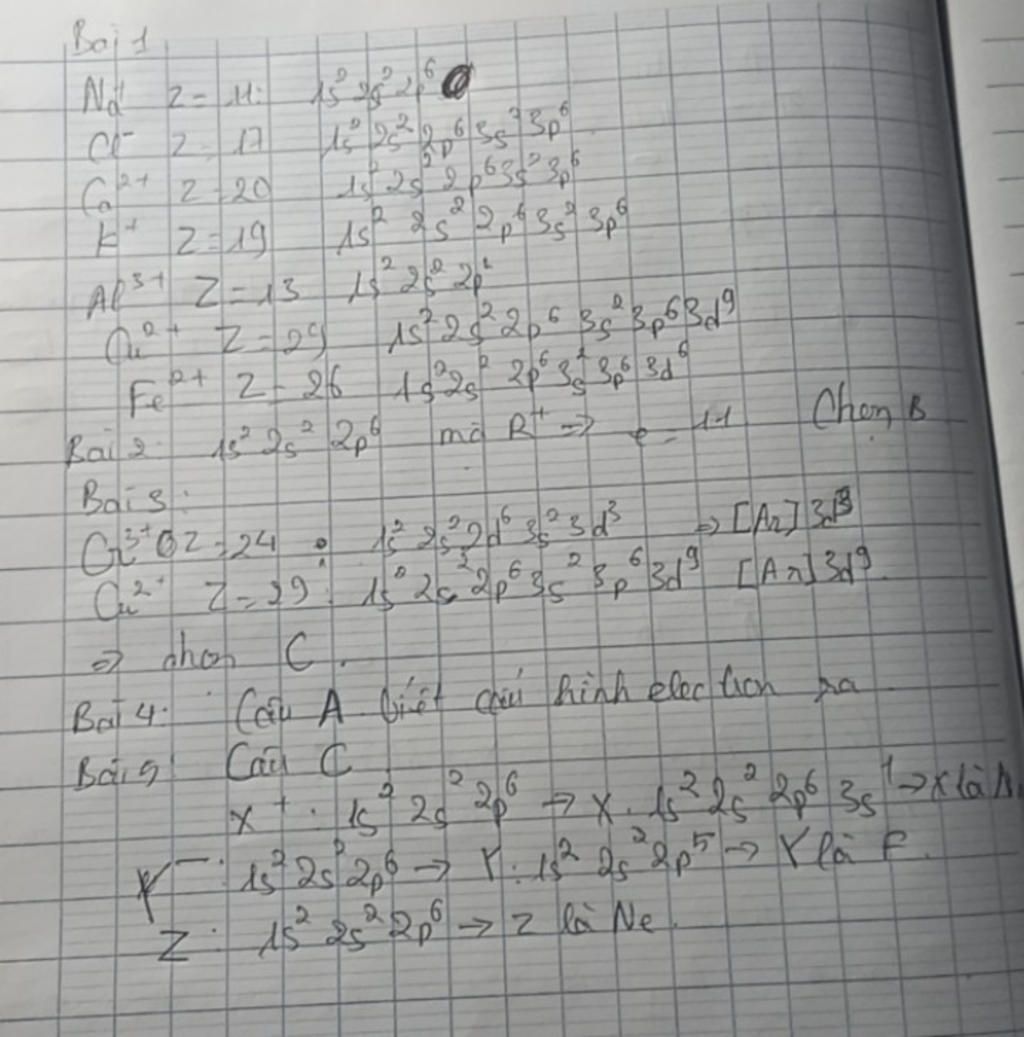 Bài 1
Na⁺ Z = 11: 1s² 2s² 2p⁶
Cl⁻ Z = 17 1s² 2s² 2p⁶ 3s² 3p⁶
Ca²⁺ Z = 20 1s² 2s² 2p⁶ 3s² 3p⁶
K⁺ Z = 19 1s² 2s² 2p⁶ 3s² 3p⁶
Al³⁺ Z = 13 1s² 2s² 2p⁶
Cu²⁺ Z = 29 1s² 2s² 2p⁶ 3s² 3p⁶ 3d⁹
Fe²⁺ Z = 26 1s² 2s² 2p⁶ 3s² 3p⁶ 3d⁶
Bài 2: 1s² 2s² 2p⁶ mà R⁺ => e = 11 Chọn B
Bài 3:
Cr³⁺ Z = 24: 1s² 2s² 2d⁶ 3s² 3d³ => [Ar] 3d³
Cu²⁺ Z = 29: 1s² 2s² 2p⁶ 3s² 3p⁶ 3d⁹ [Ar] 3d⁹
=> chọn C.
Bài 4: Câu A viết cấu hình election ra
Bài 5: Câu C
X⁺: 1s² 2s² 2p⁶ → X: 1s² 2s² 2p⁶ 3s¹ → X là
Y⁻: 1s² 2s² 2p⁶ → Y: 1s² 2s² 2p⁵ → Y là F.
Z: 1s² 2s² 2p⁶ → Z là Ne.